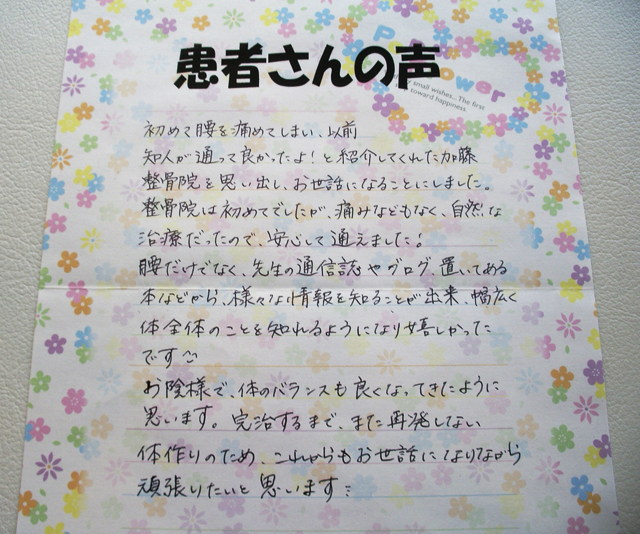 患者さんの声
Power
small wishes... The first
toward happiness
初めて腰を痛めてしまい、以前
知人が通って良かったよ！と紹介してくれた加藤
整骨院を思い出し、お世話になることにしました。
整骨院は初めてでしたが、痛みなどもなく、自然な
治療だったので、安心して通えました！
腰だけでなく、先生の通信誌やブログ、置いてある
本などから、様々な情報を知ることが出来、幅広く
体全体のことを知れるようになり嬉しかった
です
お陰様で、体のバランスも良くなってきたように
思います。完治するまで、また再発しない
体作りのため、これからもお世話になりながら
頑張りたいと思います